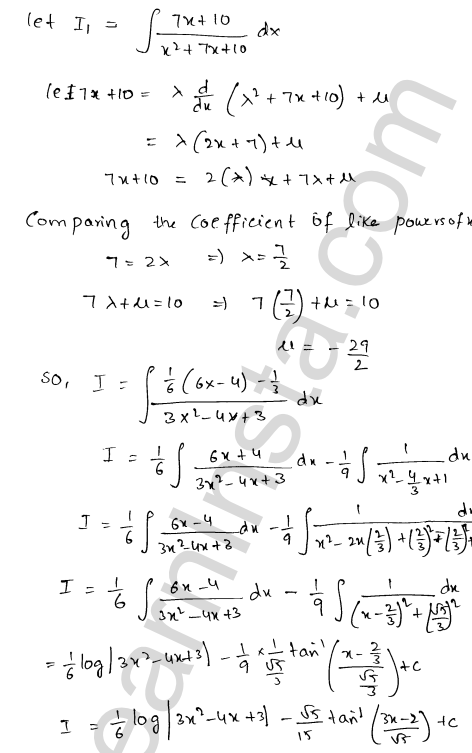 let I₁ = ∫ (7x+10)/(x²+7x+10) dx
let 7x+10 = λ d/dx (λ²+7x+10) + μ
= λ(2x+7)+μ
7x+10 = 2(λ)x+7λ+μ
Comparing the Coefficient of like powers of x
7 = 2λ ⇒ λ = 7/2
7λ+μ=10 ⇒ 7(7/2)+μ = 10
μ = -29/2
So, I = ∫ (1/6(6x-4) - 1/3)/(3x²-4x+3) dx
I = 1/6 ∫ (6x+4)/(3x²-4x+3) dx - 1/9 ∫ 1/(x²-4/3x+1)
I = 1/6 ∫ (6x-4)/(3x²-4x+3) dx - 1/9 ∫ 1/(x²-2x(2/3)+(2/3)²-(2/3)²+ d
I = 1/6 ∫ (6x-4)/(3x²-4x+3) dx - 1/9 ∫ 1/((x-2/3)²+(√5/3)²) dx
= 1/6 log|3x²-4x+3| - 1/9 × 1/(√5/3) tan⁻¹((x-2/3)/(√5/3))+c
I = 1/6 log|3x²-4x+3| - √5/15 tan⁻¹((3x-2)/√5) +c
learnInsta.com